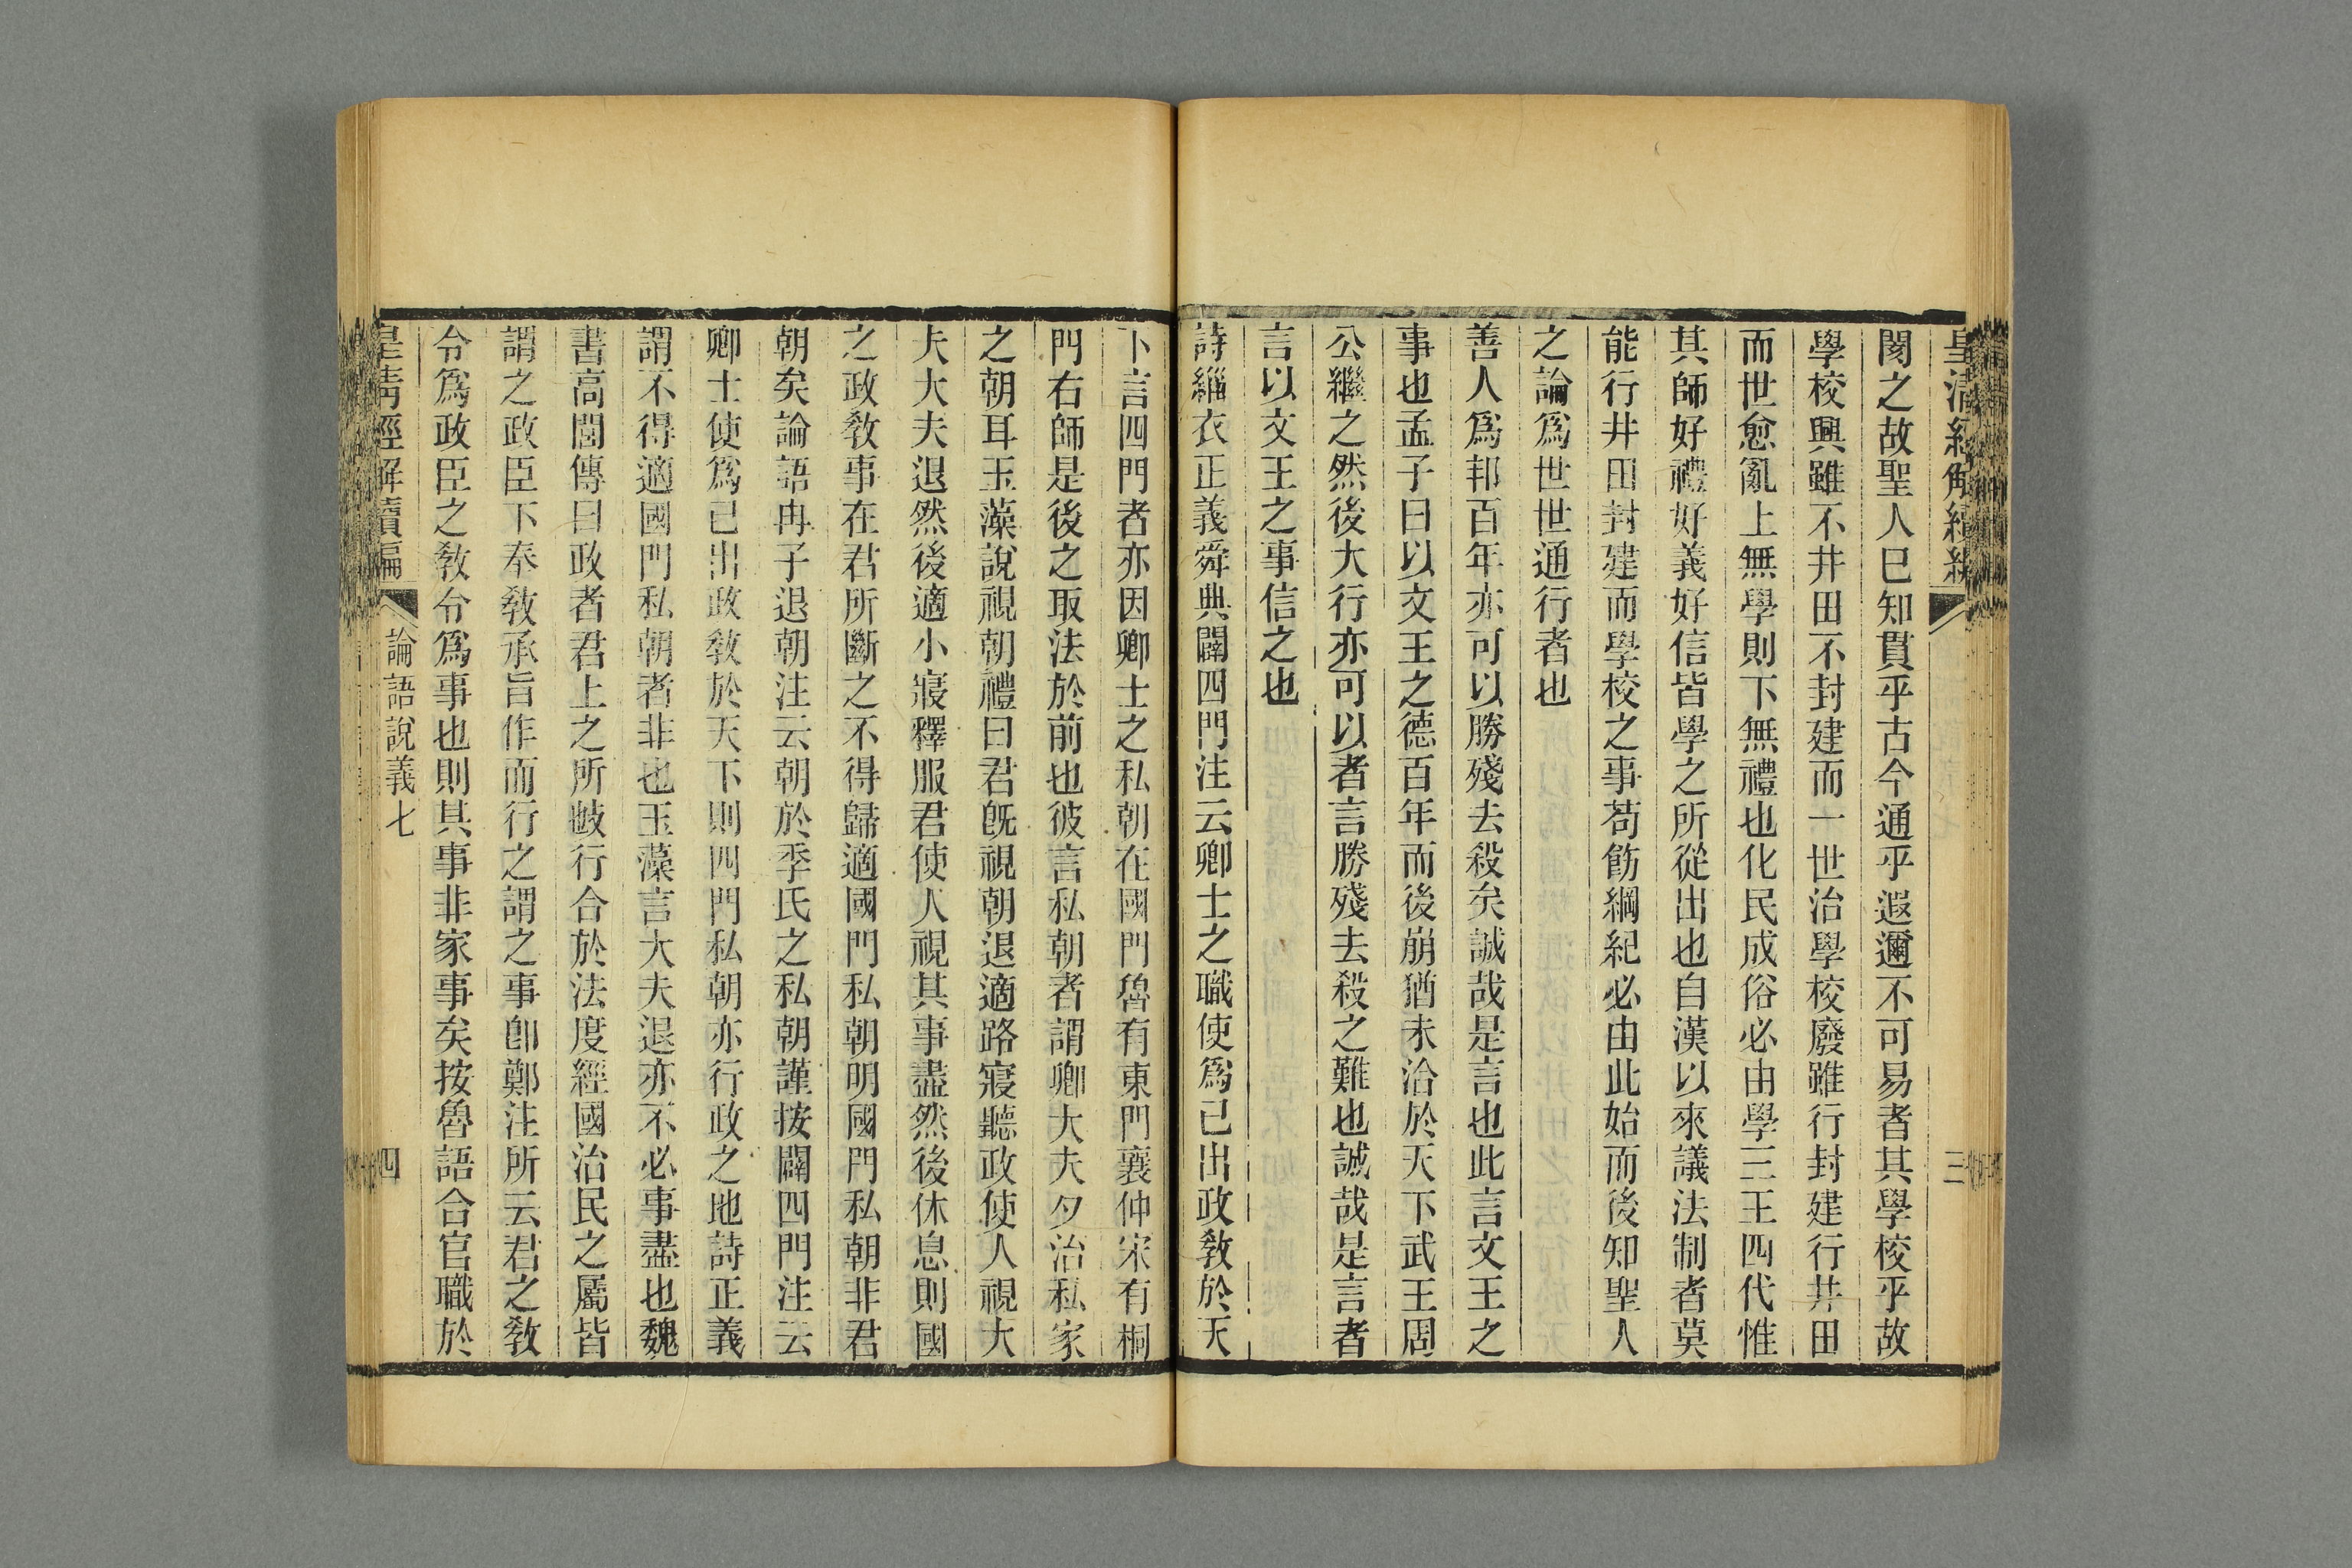 皇清經解續編
三
閔之故聖人巳知貫乎古今通乎遐邇不可易者其學校乎故
學校興雖不井田不封建而一世治學校廢雖行封建行井田
而世愈亂上無學則下無禮也化民成俗必由學三王四代惟
其師好禮好義好信皆學之所從出也自漢以來議法制者莫
能行井田封建而學校之事苟飭綱紀必由此始而後知聖人
之論爲世世通行者也
善人爲邦百年亦可以勝殘去殺矣誠哉是言也此言文王之
事也孟子曰以文王之德百年而後崩猶未洽於天下武王周
公繼之然後大行亦可以者言勝殘去殺之難也誠哉是言者
言以文王之事信之也
詩緇衣正義舜典闢四門注云卿士之職使爲己出政敎於天
下言四門者亦因卿士之私朝在國門魯有東門襄仲宋有桐
門右師是後之取法於前也彼言私朝者謂卿大夫夕治私家
之朝耳玉藻說視朝禮曰君旣視朝退適路寢聽政使人視大
夫大夫退然後適小寢釋服君使人視其事盡然後休息則國
之政敎事在君所斷之不得歸適國門私朝明國門私朝非君
朝矣論語冉子退朝注云朝於季氏之私朝謹按闢四門注云
卿士使爲己出政敎於天下則四門私朝亦行政之地詩正義
謂不得適國門私朝者非也玉藻言大夫退亦不必事盡也魏
書高閭傳曰政者君上之所施行合於法度經國治民之屬皆
謂之政臣下奉敎承旨作而行之謂之事卽鄭注所云君之敎
令爲政臣之敎令爲事也則其事非家事矣按魯語合官職於
皇清經解續編
論語說義七
四